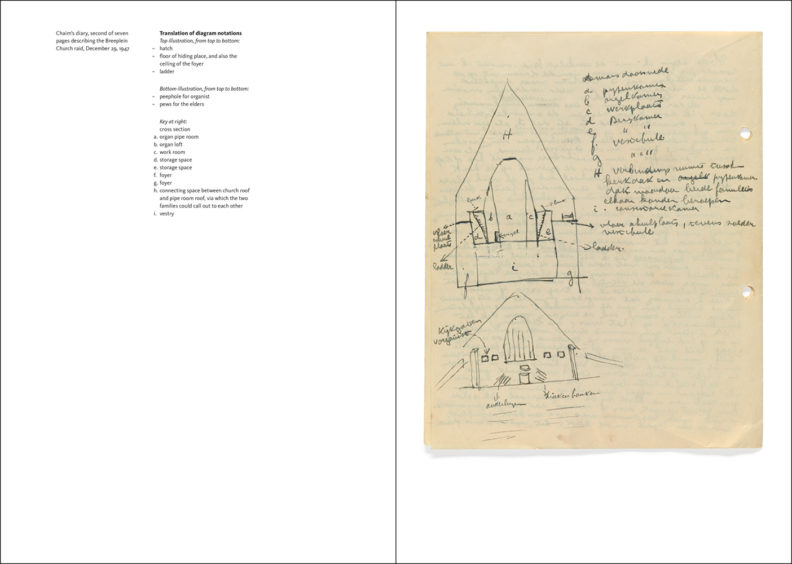 Chaim's diary, second of seven
pages describing the Breeplein
Church raid, December 29, 1947
Translation of diagram notations
Top illustration, from top to bottom:
– hatch
– floor of hiding place, and also the
ceiling of the foyer
– ladder
Bottom illustration, from top to bottom:
– peephole for organist
– pews for the elders
Key at right:
cross section
a. organ pipe room
b. organ loft
c. work room
d. storage space
e. storage space
f. foyer
g. foyer
h. connecting space between church roof
and pipe room roof, via which the two
families could call out to each other
i. vestry
doorsnede
a pijpenkamer
b orgelkamer
c werkplaats
d Bergkamer
e " "
f. vestibule
g " " "
H verbindings ruimte tussch
kerkdak en pijpenkamer
dak waardoor beide families
elkaar konden beroepen
i. Kamer
vloer schuilplaats, tevens zolder
vestibule
ladder.
i
H
luik
luik
b
a
c
d
e
vloer
schuil
plaats
ladder
f
i
g
Kijkgaten
organist
banken